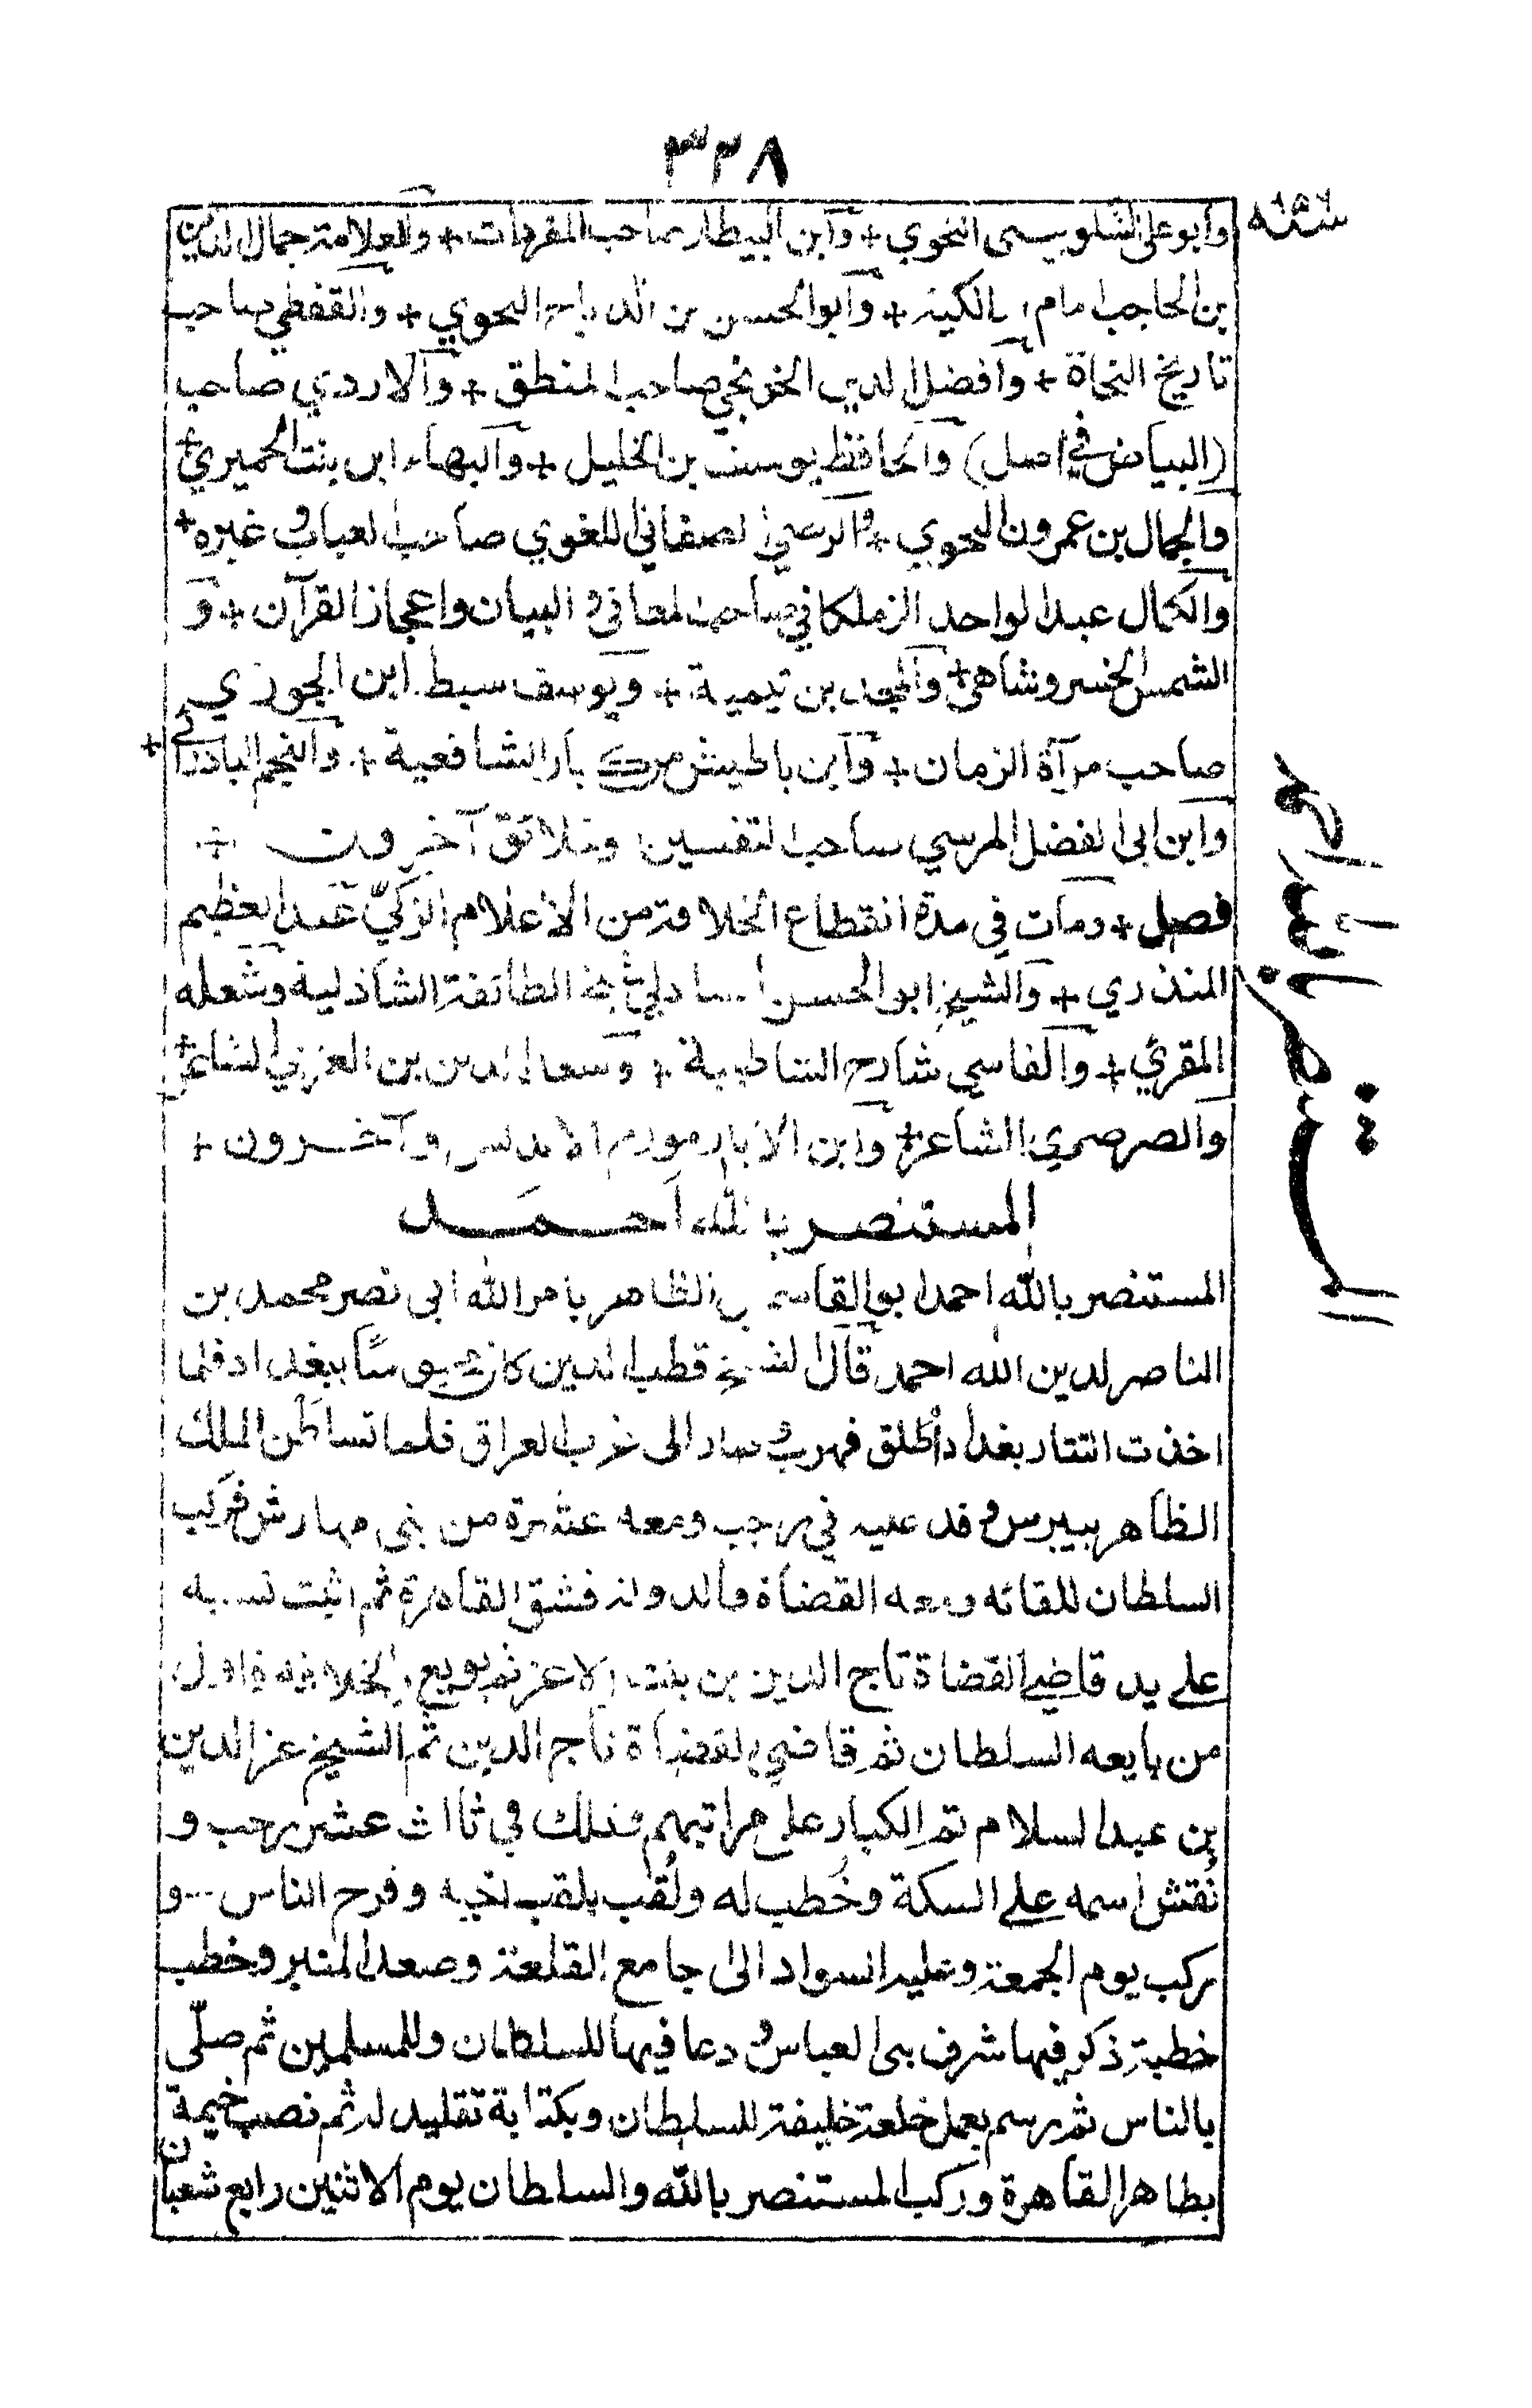 ٣٣٨
سنة ٦٥٦
وأبو علي الشلوبيني النحوي + وابن البيطار صاحب المفردات + والعلامة جمال الدين
بن الحاجب امام المالكية + وابو الحسن بن الدباج النحوي + والقفطي صاحب
تاريخ النحاة + وافضل الدين الخونجي صاحب المنطق + والازدي صاحب
(البياض في اصل) والحافظ يوسف بن الخليل + والبهاء ابن بنت الحميري +
والجمال بن عمرون النحوي + والرضي الصغاني اللغوي صاحب العباب و غيره +
والكمال عبد الواحد الزملكاني صاحب المعاني و البيان واعجاز القرآن + و
الشمس الخسروشاهي + والمجد بن تيمية + ويوسف سبط ابن الجوزي
صاحب مرآة الزمان + وابن باطيش من كبار الشافعية + والنجم البادرائي +
وابن ابي الفضل المرسي صاحب التفسير وخلائق آخرون +
فصل + ومات في مدة انقطاع الخلافة من الاعلام الزكيّ عبد العظيم
المنذري + والشيخ ابو الحسن الشاذلي شيخ الطائفة الشاذلية وشعله
المقرئ + والفاسي شارح الشاطبية + وسعد الدين بن العزي الشاعر +
والصرصري الشاعر + وابن الابار مورخ الاندلس وآخرون +
المستنصر بالله احمد
المستنصر بالله احمد ابو القاسم بن الظاهر بامر الله ابي نصر محمد بن
الناصر لدين الله احمد قال الشيخ قطب الدين كان محبوسًا ببغداد فلما
اخذت التتار بغداد أطلق فهرب و صار الى عرب العراق فلما تسلطن الملك
الظاهر بيبرس وفد عليه في رجب ومعه عشرة من بني مهارش فركب
السلطان للقائه ومعه القضاة والدولة فشق القاهرة ثم اثبت نسبه
على يد قاضي القضاة تاج الدين بن بنت الاعز ثم بويع بالخلافة فاول
من بايعه السلطان ثم قاضي القضاة تاج الدين ثم الشيخ عز الدين
بن عبد السلام ثم الكبار على مراتبهم وذلك في ثالث عشر رجب و
نُقش اسمه على السكة وخُطب له ولُقب بلقب اخيه وفرح الناس و
ركب يوم الجمعة وعليه السواد الى جامع القلعة وصعد المنبر وخطب
خطبة ذكر فيها شرف بني العباس و دعا فيها للسلطان وللمسلمين ثم صلّى
بالناس ثم رسم بعمل خلعة خليفة للسلطان وبكتابة تقليد له ثم نصب خيمة
بظاهر القاهرة وركب المستنصر بالله والسلطان يوم الاثنين رابع شعبان